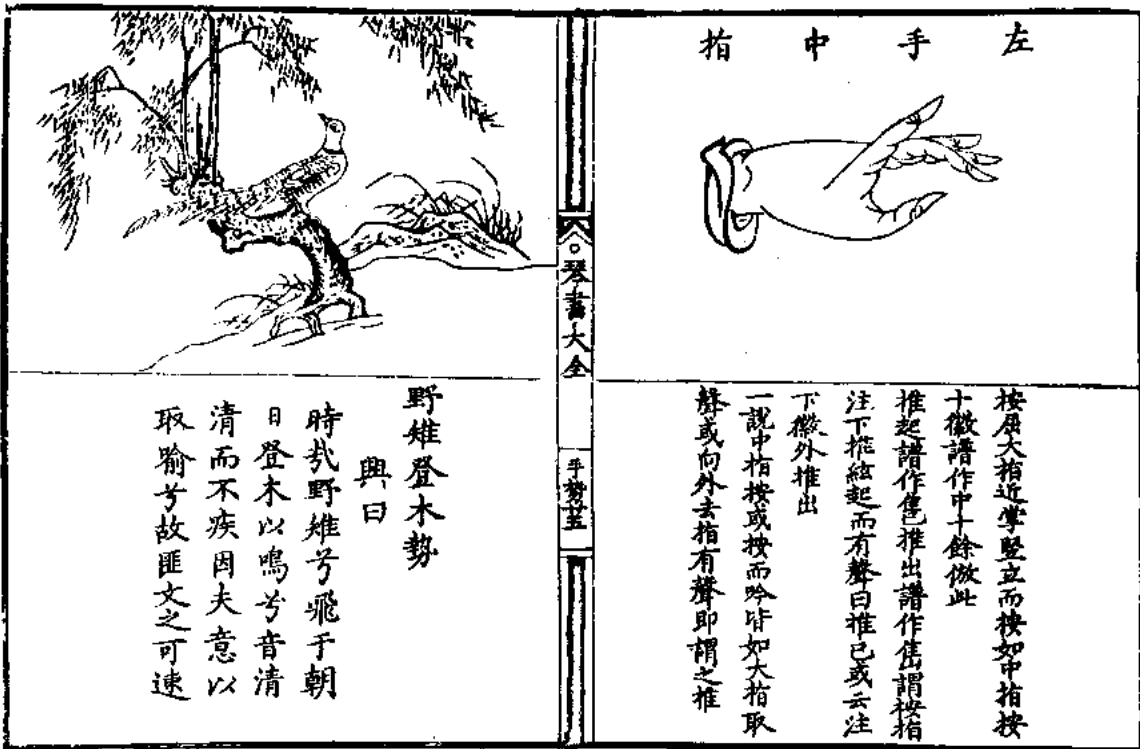 左手中指
按屈大指近掌竪立而按如中指按
十徽譜作中十餘倣此
推起譜作 推出譜作 謂按指
注下推絃起而有聲曰推已或云注
下徽外推出
一說中指按或按而吟皆如大指取
聲或向外去指有聲即謂之推
琴書大全
手勢五
野雉登木勢
興曰
時哉野雉兮飛于朝
日登木以鳴兮音清
清而不疾因夫意以
取喻兮故匪文之可速